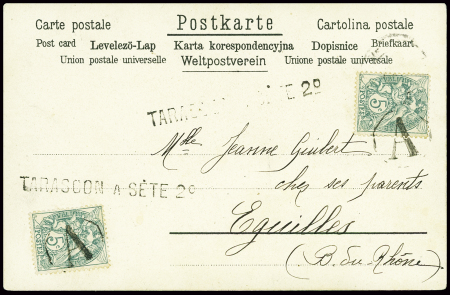 Carte postale Postkarte Cartolina postale
Post card Levelező-Lap Karta korespondencyjna Dopisnice Briefkaart
Union postale universelle Weltpostverein Unione postale universale
TARASCON A SÈTE 2º
5
A
Mlle Jeanne Guibert
chez ses parents
TARASCON A SÈTE 2º
Eguilles
5
A
(B. du Rhône)